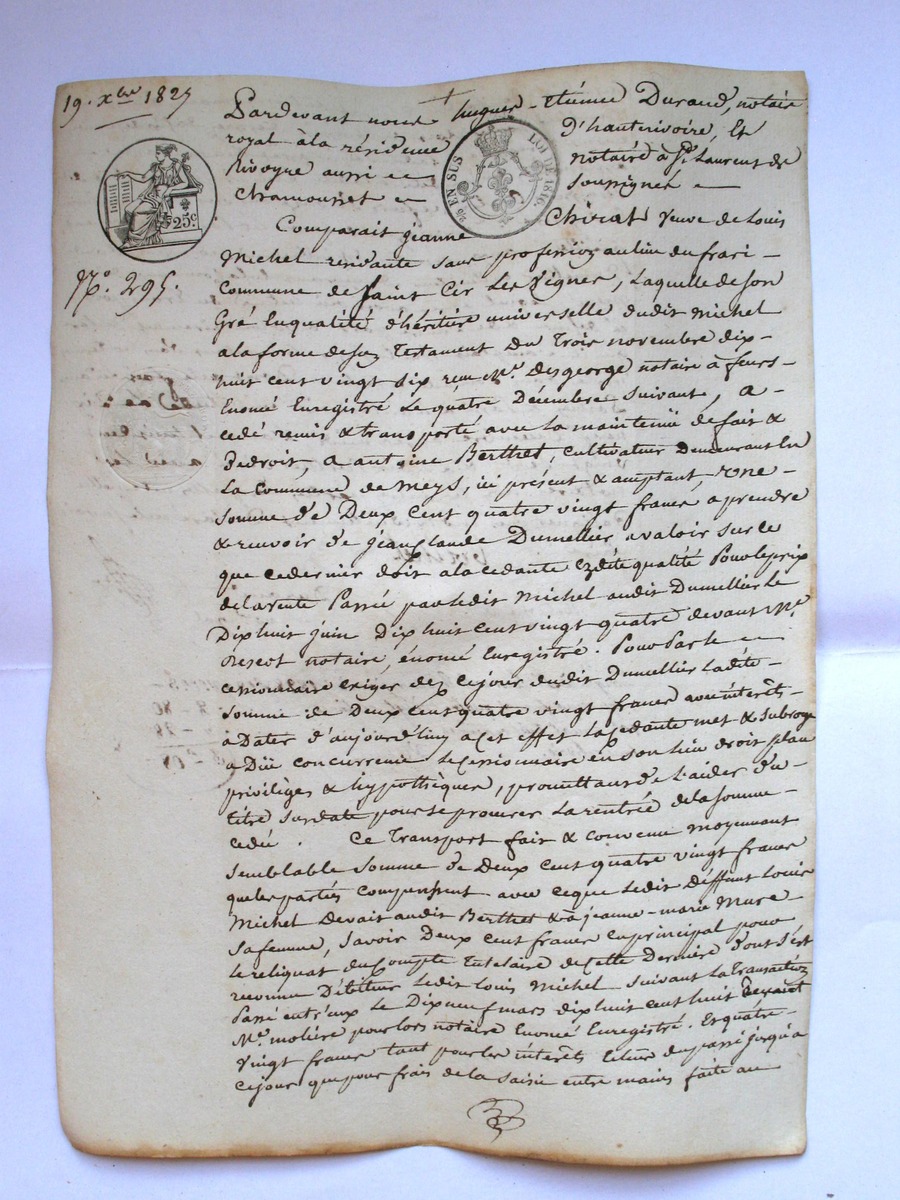 19. xbre 1827
Pardevant nous hugues-étiénne Durand, notaire
royal à la résidence d'hauterivoire, Et
Rivoyre aussi notaire à St. Laurent de
Chamousset soussignés
EN SUS LOI DE 1816
25c
No. 295.
Comparait jeanne Chirat veuve de Louis
Michel residante sans profession au lieu du frasi-
commune de Saint Cir Les Vignes, Laquelle de son
Gré Enqualité d'héritière universelle dudit Michel
a la forme de son Testament du Trois novembre dix-
huit cent vingt six reçu Me. Desgeorge notaire à feurs-
Enoncé Enregistré Le quatre Décembre suivant, a-
cedé remis & transporté avec la maintenüe de fait &
De droit, a antoine Berthet, cultivateur Demeurant En
La Commune de Meys, ici présent & acceptant, Une-
somme de Deux cent quatre vingt francs a prendre
& recevoir de jean Claude Dumellier a valoir sur ce
que ce dernier doit a la cedante Ezdite qualité Pour le prix
de la vente Passée par Ledit Michel audit Dumellier Le
Dix huit juin Dix huit cent vingt quatre devant Me.
Rescot notaire, énoncé Enregistré. Pour Par le
cessionnaire exiger dez ce jour dudit Dumellier Ladite-
somme de Deux cent quatre vingt francs avec intérêts-
à Dater d'aujourd'huy a cet effet La Cedante met & subroge
a Düe concurrence Le cessionnaire en son lieu droit place
privilèges & hypothèques, promettans de L'aider du-
titre susdaté pour se procurer La rentrée de la somme-
cedée. Ce Transport fait & convenu moyennant
semblable somme de Deux cent quatre vingt francs
que les parties compensent avec ce que Ledit Déffunt Louis
Michel Devait audit Berthet & à jeanne-marie Mure
sa femme, savoir Deux cent francs en principal pour
le reliquat du Compte tutelaire de cette Dernière dont s'est
reconnu Débiteur Ledit Louis Michel suivant La Transaction
Passé entr'eux Le Dix neuf mars dix huit cent huit devant
Me. molière pour lors notaire Enoncé Enregistré. Et quatre-
vingt francs tant pour les intérêts d'icelui du passé jusqu'a
ce jour que pour frais de la saisie entre mains faite au